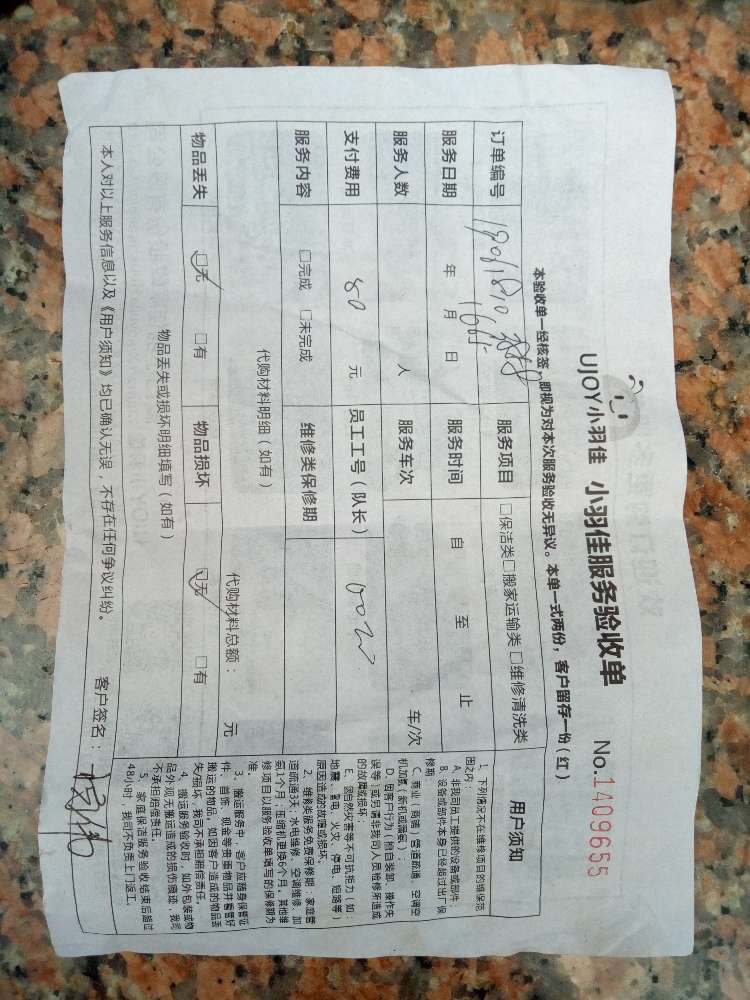 UJOY小羽佳 小羽佳服务验收单 No.1409655
本验收单一经核签，即视为对本次服务验收无异议。本单一式两份，客户留存一份（红）
订单编号 服务项目 □保洁类□搬家运输类□维修清洗类
服务日期 年 月 日 服务时间 自 至 止
服务人数 人 服务车次 车/次
支付费用 80 元 员工工号（队长） 002
服务内容 □完成 □未完成 维修类保修期
代购材料明细（如有）
代购材料总额： 元
物品丢失 □无 □有 物品损坏 □无 □有
物品丢失或损坏明细填写（如有）
本人对以上服务信息以及《用户须知》均已确认无误，不存在任何争议纠纷。
客户签名：
用户须知
1、下列情况不在维修项目的维保范
围之内：
A、非我司员工提供的设备或部件；
B、设备或部件本身已经超过出厂保
修期；
C、商业（商铺）管道疏通、空调空
机加氟（新机或漏氟）；
D、因客户行为（擅自装卸、操作失
误等）或另请非我司人员检修所造成
的故障或损坏；
E、因自然灾害等不可抗拒力（如：
地震、雷电、水火、停电、短路等）
原因造成的故障或损坏。
2、维修类服务免费保修期：家庭管
道疏通3天，水电维修、空调维修、加
氨1个月；压缩机更换6个月，其他维
修项目以服务验收单填写的保修期为
准。
3、搬运服务中，客户应随身保管证
件、首饰、现金等贵重物品并看管好
搬运的物品，如因客户造成的物品丢
失/损坏，我司不承担赔偿责任。
4、搬运服务验收时，如外包装或物
品外观无搬运造成的损伤痕迹，我司
不承担赔偿责任。
5、家庭保洁服务验收结束后超过
48小时，我司不负责上门返工。